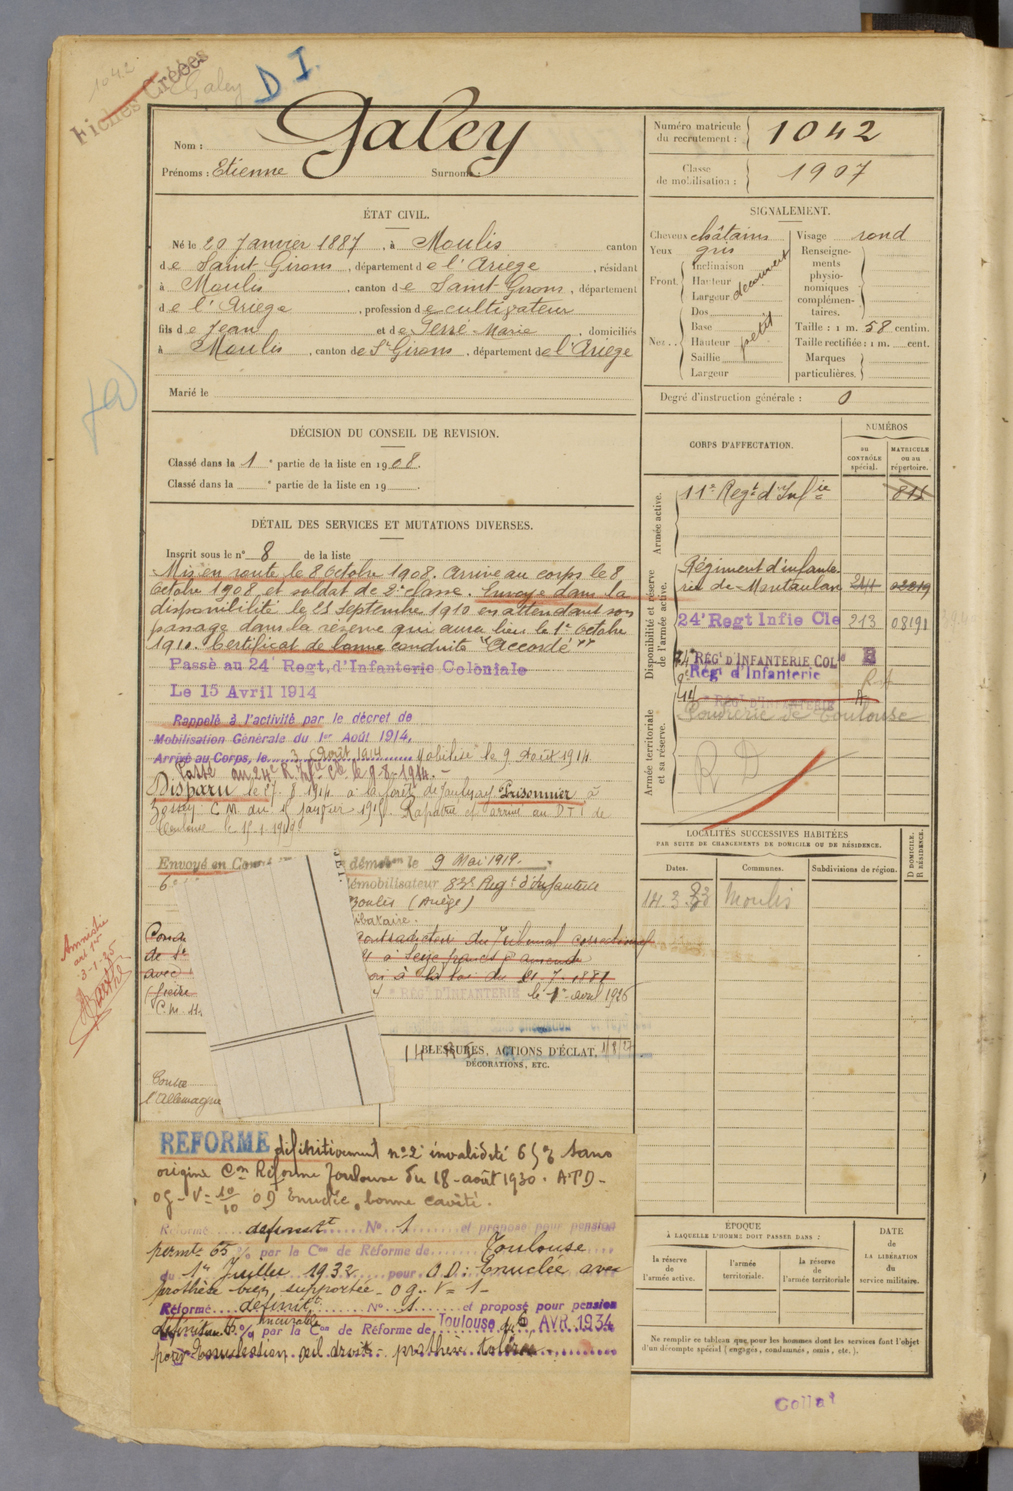 1042
Galey
Fiches Créées
D I.
Nom : Galey
Prénoms : Etienne Surnom :
Numéro matricule du recrutement : 1042
Classe de mobilisation : 1907
ÉTAT CIVIL.
Né le 20 Janvier 1887, à Moulis canton
de Saint Girons, département de l'Ariège, résidant
à Moulis, canton de Saint Girons, département
de l'Ariège, profession de cultivateur
fils de Jean et de Marie, domiciliés
à Moulis, canton de St Girons, département de l'Ariège
Marié le
SIGNALEMENT.
Cheveux châtains
Yeux gris
Front. Inclinaison
Hauteur
Largeur
découvert
Nez.. Dos
Base
Hauteur
Saillie
Largeur
petit
Visage rond
Renseignements physionomiques complémentaires.
Taille : 1 m. 58 centim.
Taille rectifiée : 1 m. cent.
Marques particulières.
Degré d'instruction générale : 0
DÉCISION DU CONSEIL DE REVISION.
Classé dans la 1e partie de la liste en 1908.
Classé dans la e partie de la liste en 19
DÉTAIL DES SERVICES ET MUTATIONS DIVERSES.
Inscrit sous le n° 8 de la liste
Mis en route le 8 Octobre 1908. Arrivé au corps le 8
Octobre 1908, et soldat de 2e classe. Envoyé dans la
disponibilité le 25 Septembre 1910 en attendant son
passage dans la réserve qui aura lieu le 1er Octobre
1910. Certificat de bonne conduite "Accordé"
Passé au 24e Regt, d'Infanterie Coloniale
Le 15 Avril 1914
Rappelé à l'activité par le décret de
Mobilisation Générale du 1er Août 1914,
Arrivé au Corps, le 3 Août 1914 Mobilisé le 9 Août 1914
Passé au 24e R. Infie Cle le 9-8-1914.
Disparu le 27.8.1914 à la forêt de Prisonnier à
Zossen C.M. du 5 janvier 1915. Rapatrié et arrivé au DTI de
Toulouse le 15-1-1919
Envoyé en Congé
démob le 9 Mai 1919.
démobilisateur 83e Regt d'Infanterie
Moulis (Ariège)
contradictoire du Tribunal correctionnel
à Seize francs d'amende
à la loi du 21.7.1881
RÉGt D'INFANTERIE le 1er avril 1926
Amnistie
3-1-35
C.M.
Contre
l'Allemagne
BLESSURES, ACTIONS D'ÉCLAT,
DÉCORATIONS, ETC.
CORPS D'AFFECTATION.
NUMÉROS
au CONTRÔLE spécial.
MATRICULE ou au répertoire.
Armée active.
11e Regt d'Infie 811
Disponibilité et réserve de l'armée active.
Régiment d'infanterie de Montauban 211 02019
24e Regt Infie Cle 213 08191
24e RÉGt D'INFANTERIE COLe
Régt d'Infanterie
14e Régt D'INFANTERIE
Armée territoriale et sa réserve.
Poudrerie de Toulouse
R D
LOCALITÉS SUCCESSIVES HABITÉES
PAR SUITE DE CHANGEMENTS DE DOMICILE OU DE RÉSIDENCE.
Dates. Communes. Subdivisions de région. D DOMICILE. R RÉSIDENCE.
14.3.33 Moulis
REFORMÉ définitivement n°2 invalidité 65% sans
origine Con Réforme Toulouse du 18-août 1930. ATD-
OG-V=10/10 OD Enuclée, bonne cavité.
Réformé définitt N° 1 et proposé pour pension
permte 65% par la Con de Réforme de Toulouse
du 1er Juillet 1932 pour OD: Enuclée avec
prothèse bien supportée - OG. V=1-
Réformé définitt N° 1 et proposé pour pension
définitive 65% incurable par la Con de Réforme de Toulouse du 6 AVR. 1934
pour Enucléation œil droit - prothèse tolérée
ÉPOQUE
À LAQUELLE L'HOMME DOIT PASSER DANS :
la réserve de l'armée active.
l'armée territoriale.
la réserve de l'armée territoriale
DATE de LA LIBÉRATION du service militaire.
Ne remplir ce tableau que pour les hommes dont les services font l'objet
d'un décompte spécial (engagés, condamnés, omis, etc.).